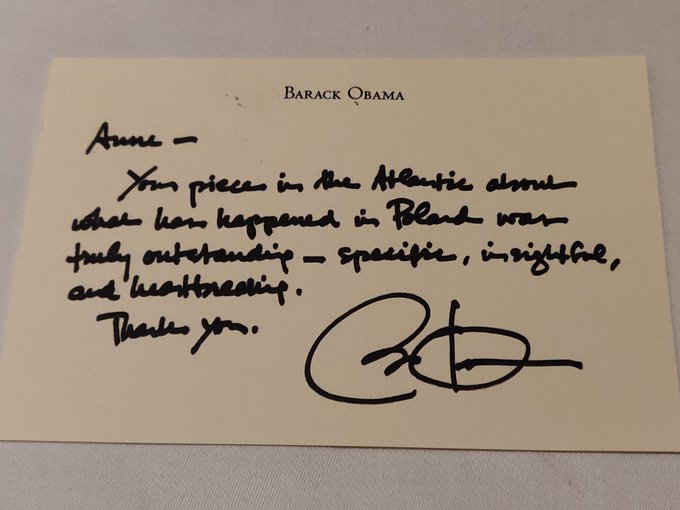 BARACK OBAMA
Anne —
Your piece in the Atlantic about
what has happened in Poland was
truly outstanding — specific, insightful,
and heartbreaking.
Thank you.